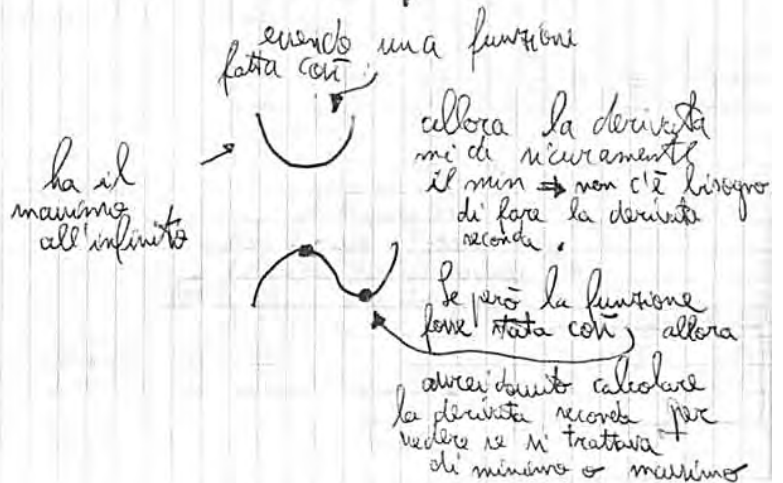 essendo una funzione
fatta così:
allora la derivata
mi dà sicuramente
il min ⇒ non c'è bisogno
di fare la derivata
seconda.
ha il
massimo
all'infinito
Se però la funzione
fosse stata così, allora
avrei dovuto calcolare
la derivata seconda per
vedere se si trattava
di minimo o massimo